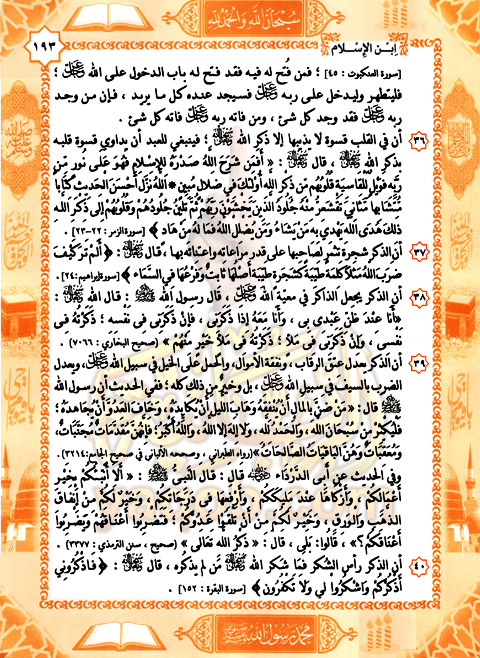 سبحان الله والحمد لله
ابن الإسلام
١٩٣
[سورة العنكبوت : ٤٥] ؛ فمن فُتح له فيه فقد فتح له باب الدخول على الله ﷻ
فليتطهر وليدخل على ربه ﷻ فسيجد عنده كل ما يريد ، فإن من وجد
ربه ﷻ فقد وجد كل شئ ، ومن فاته ربه ﷻ فاته كل شئ .
٣٦ أن في القلب قسوة لا يذيبها إلا ذكر الله ﷻ ؛ فينبغي للعبد أن يداوي قسوة قلبه
بذكر الله ﷻ ، قال ﷻ : ﴿ أَفَمَن شَرَحَ اللهُ صَدْرَهُ لِلإِسْلامِ فَهُوَ عَلَى نُورٍ مِّن
رَّبِّهِ فَوَيْلٌ لِّلْقَاسِيَةِ قُلُوبُهُم مِّن ذِكْرِ اللهِ أُوْلَئِكَ فِي ضَلالٍ مُبِينٍ * اللهُ نَزَّلَ أَحْسَنَ الْحَدِيثِ كِتَاباً
مُّتَشَابِهاً مَّثَانِيَ تَقْشَعِرُّ مِنْهُ جُلُودُ الَّذِينَ يَخْشَوْنَ رَبَّهُمْ ثُمَّ تَلِينُ جُلُودُهُمْ وَقُلُوبُهُمْ إِلَى ذِكْرِ اللهِ
ذَلِكَ هُدَى اللهِ يَهْدِي بِهِ مَنْ يَشَاءُ وَمَن يُضْلِلِ اللهُ فَمَا لَهُ مِنْ هَادٍ ﴾ [سورة الزمر : ٢٢-٢٣] .
٣٧ أن الذكر شجرة تثمر لصاحبها على قدر مراعاته واعتنائه بها ، قال ﷻ : ﴿ أَلَمْ تَرَ كَيْفَ
ضَرَبَ اللهُ مَثَلاً كَلِمَةً طَيِّبَةً كَشَجَرَةٍ طَيِّبَةٍ أَصْلُهَا ثَابِتٌ وَفَرْعُهَا فِي السَّمَاءِ ﴾ [سورة إبراهيم : ٢٤] .
٣٨ أن الذكر يجعل الذاكر في معية الله ﷻ ، قال رسول الله ﷺ : قال الله ﷻ :
«أَنَا عِنْدَ ظَنِّ عَبْدِى بِى ، وَأَنَا مَعَهُ إِذَا ذَكَرَنِى ، فَإِنْ ذَكَرَنِى فِى نَفْسِهِ ؛ ذَكَرْتُهُ فِى
نَفْسِى ، وَإِنْ ذَكَرَنِى فِى مَلَأٍ ؛ ذَكَرْتُهُ فِى مَلَأٍ خَيْرٍ مِنْهُمْ » (صحيح البخاري : ٧٠٦٦) .
٣٩ أن الذكر يعدل عتق الرقاب ، ونفقة الأموال، والحمل على الخيل في سبيل الله ﷻ ، ويعدل
الضرب بالسيف في سبيل الله ﷻ ، بل وخير من ذلك كله ؛ ففي الحديث أن رسول الله
ﷺ قال : « مَنْ ضَنَّ بِالْمَالِ أَنْ يُنْفِقَهُ وَهَابَ اللَّيْلَ أَنْ يُكَابِدَهُ ، وَخَافَ الْعَدُوَّ أَنْ يُجَاهِدَهُ ؛
فَلْيُكْثِرْ مِنْ سُبْحَانَ اللهِ ، وَالْحَمْدُ للهِ ، وَلاَ إِلَهَ إِلاَّ اللهُ ، وَاللهُ أَكْبَرُ ؛ فَإِنَّهُنَّ مُقَدِّمَاتٌ مُجَنِّبَاتٌ ،
وَمُعَقِّبَاتٌ وَهُنَّ الْبَاقِيَاتُ الصَّالِحَاتُ » (رواه الطبراني ، وصححه الألباني في صحيح الجامع : ٣٢١٤)
وفي الحديث عن أبى الدَّرْدَاءِ ﷺ قال : قال النَّبِىُّ ﷺ : « أَلاَ أُنَبِّئُكُمْ بِخَيْرِ
أَعْمَالِكُمْ وَأَزْكَاهَا عِنْدَ مَلِيكِكُمْ ، وَأَرْفَعِهَا فِي دَرَجَاتِكُمْ وَخَيْرٌ لَكُمْ مِنْ إِنْفَاقِ
الذَّهَبِ وَالْوَرِقِ ، وَخَيْرٌ لَكُمْ مِنْ أَنْ تَلْقَوْا عَدُوَّكُمْ ؛ فَتَضْرِبُوا أَعْنَاقَهُمْ وَيَضْرِبُوا
أَعْنَاقَكُمْ ؟» ، قَالُوا: بَلَى ، قَالَ : «ذِكْرُ اللهِ تَعَالَى » (صحيح ، سنن الترمذي : ٣٣٧٧) .
٤٠ أن الذكر رأس الشكر فما شكر الله ﷻ مَن لم يذكره ، قال ﷻ : ﴿ فَاذْكُرُونِي
أَذْكُرْكُمْ وَاشْكُرُوا لِي وَلَا تَكْفُرُونِ ﴾ [سورة البقرة : ١٥٢] .
محمد رسول الله ﷺ